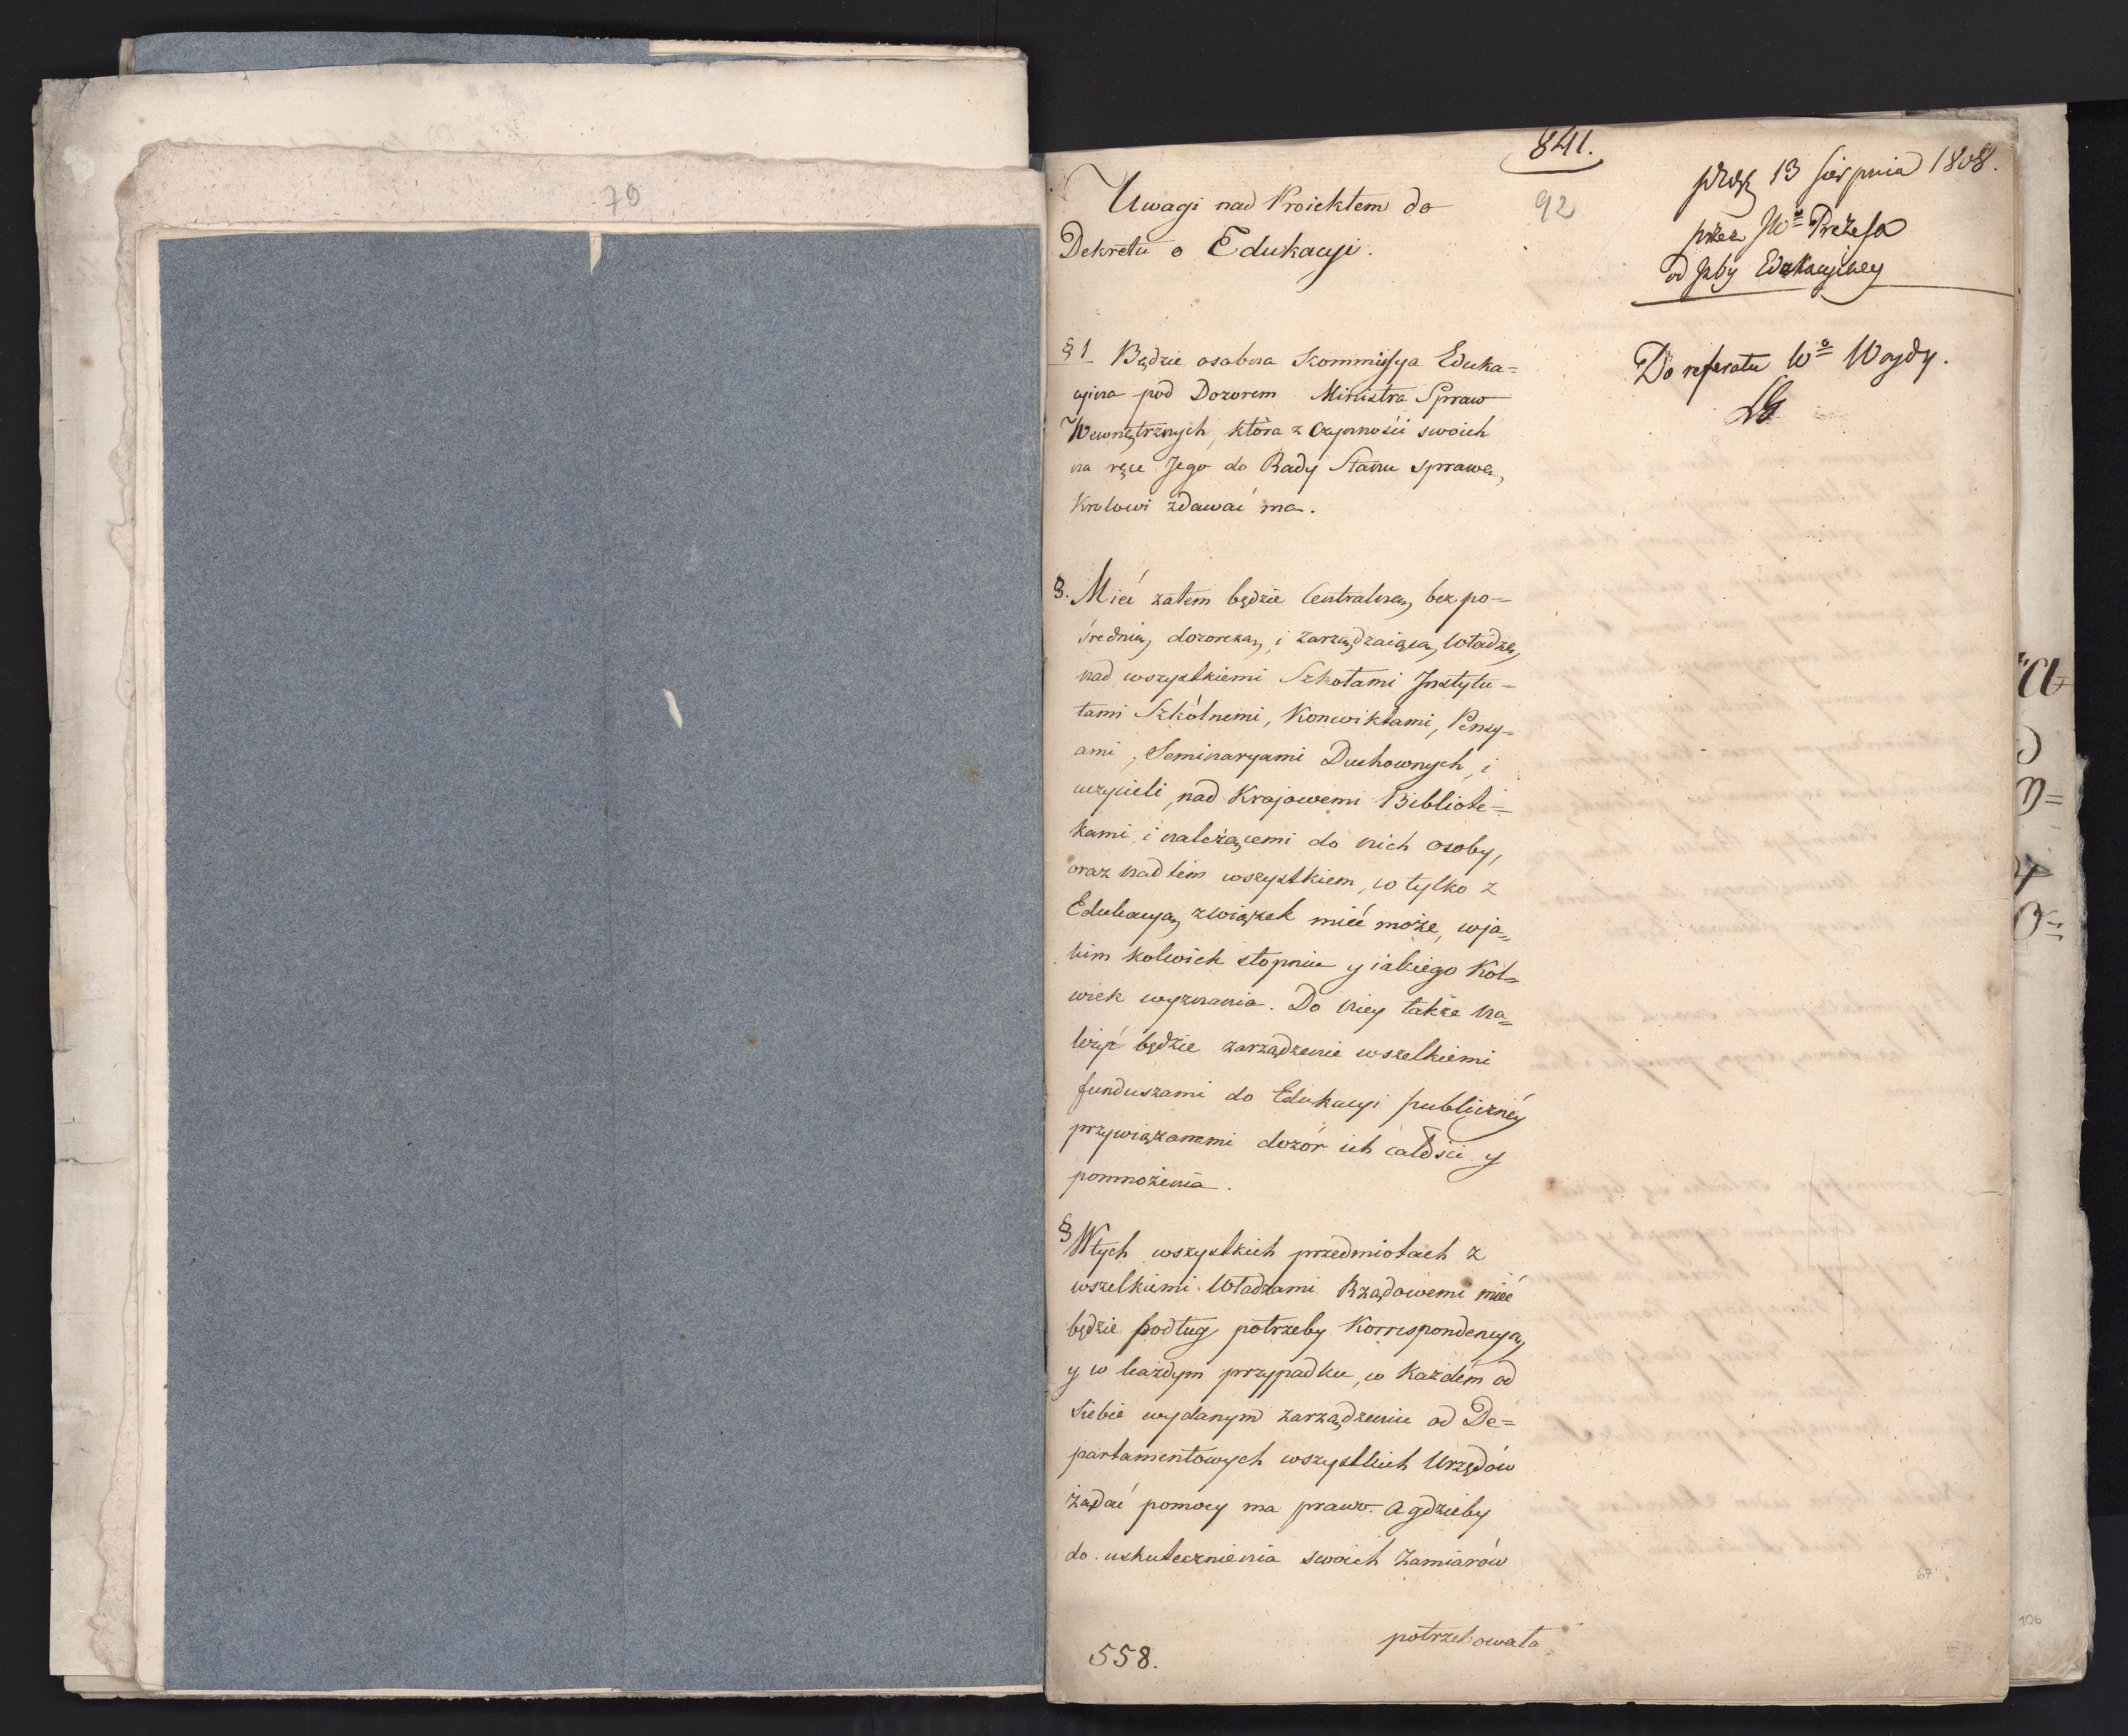 79
841.
92
Uwagi nad Proiektem do
Dekretu o Edukacyi.
13 Sierpnia 1808.
przez JWo Prezesa
od Izby Edukacyiney
Do referatu Wo Woydy.
§ 1 Będzie osobna Kommissya Eduka=
cyina pod Dozorem Ministra Spraw
Wewnętrznych, która z Czynności swoich
na ręce Jego do Rady Stanu sprawę,
Krolowi zdawać ma.
§. Mieć zatem będzie Centralną, bezpo=
średnią, dozorczą, i zarządzaiącą, Władzę,
nad wszystkiemi Szkołami Instytu=
tami Szkólnemi, Konwiktami, Pensy=
ami, Seminaryami Duchownych, i
uczycieli, nad Krajowemi Bibliote=
kami i należącemi do nich osoby,
oraz nad tém wszystkiem, co tylko z
Edukacyą, związek mieć może, w ja=
kim kolwiek stopniu y iakiego Kol=
wiek wyznania. Do niey także na=
leżyć będzie zarządzenie wszelkiemi
funduszami do Edukacyi publiczney
przywiązanemi dozór ich całości y
pomnożenia.
§ W tych wszystkich przedmiotach z
wszelkiemi Władzami Rządowemi mieć
będzie podług potrzeby Korrespondencyą,
y w każdym przypadku, w każdém od
Siebie wydanym zarządzeniu od De=
partamentowych wszystkich Urzędów
żądać pomocy ma prawo. A gdzieby
do uskutecznienia swoich Zamiarów
potrzebowała
558.
67
106